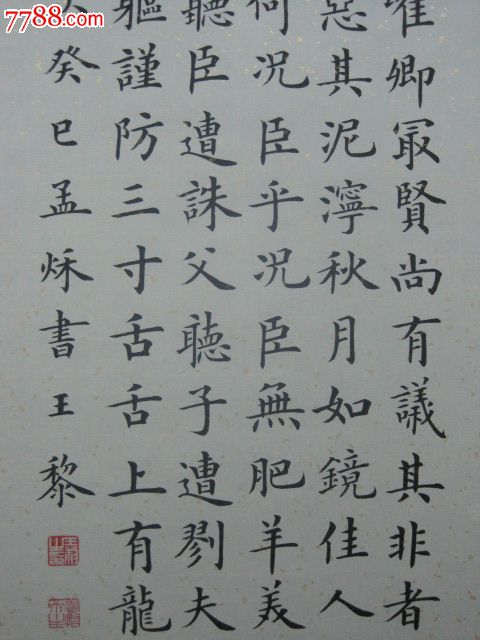 7788.com
唯卿冣賢尚有議其非者
惡其泥濘秋月如鏡佳人
何况臣乎况臣無肥羊美
聽臣遭誅父聽子遭剹夫
軀謹防三寸舌舌上有龍
癸巳孟秌書王黎